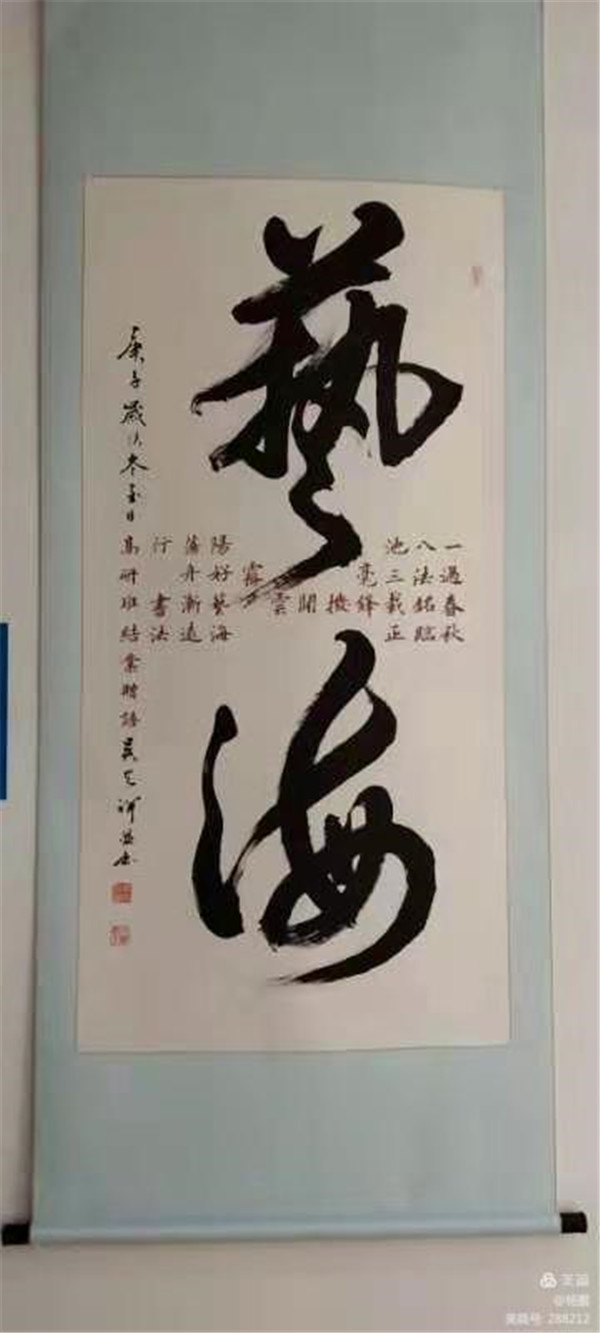 藝海
一過春秋
八法銘臨
池三載正
毫鋒
撥
開
雲
霧夕
陽好藝海
蕩舟漸遠
行 書法
庚子歲次冬至日高研班結業贈語吳
美篇
美篇号: 288212